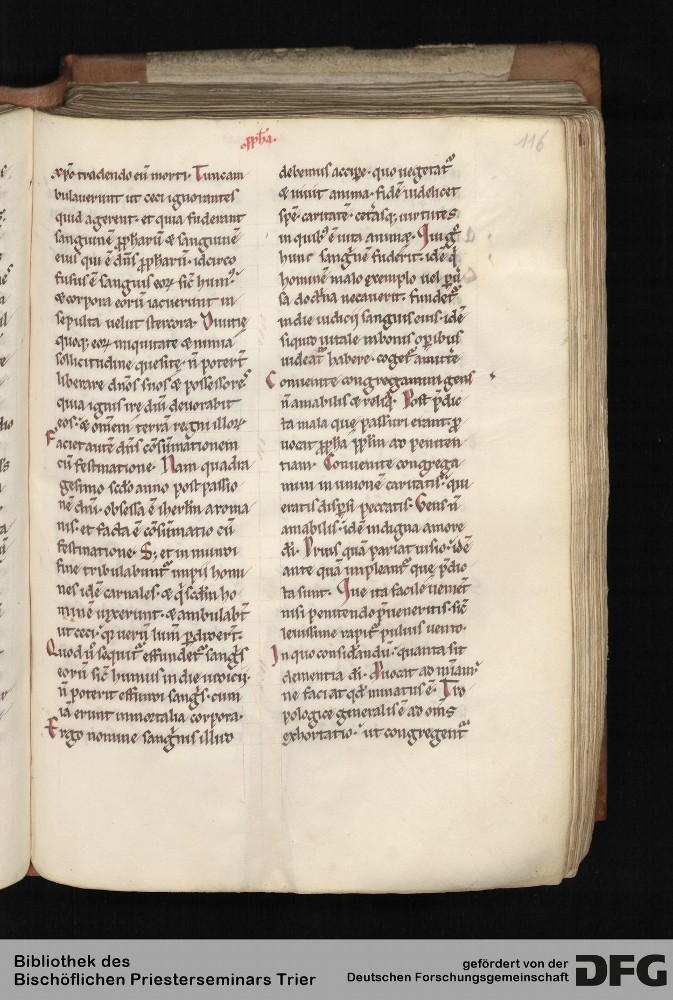 116
xp̄o tradendo eū morti. Tunc am
bulauerunt ut ceci ignorantes
quid agerent. et quia fuderunt
sanguinē ꝓph̄arū & sanguinē
eius qui ē dn̄s ꝓph̄arū. idcirco
fusus ē sanguis eoꝝ sic̄ humꝰ.
& corpora eorū iacuerunt in
sepulta uelut stercora. Diuitię
quoq; eoꝝ iniquitate & nimia
sollicitudine quesitę. n̄ potert̄
liberare dn̄os suos & possessores
quia ignis irę dn̄i deuorabit
eos. & om̄em terrā regni illoꝝ
Faciet autē dn̄s cōsūmationem
cū festinatione. Nam quadra
gesimo scd̄o anno post passio
nē dn̄i. obsessa ē iherl̄m a roma
nis. et facta ē cōsūmatio cū
festinatione. S; et in mundi
fine tribulabunt᷑ impii homi
nes idē carnales. & qi scd̄m ho
minē uixerunt. & ambulabt̄
ut ceci. qi uerū lum̄ ꝑdidert̄.
Quod u̅ sequit᷑ effundet᷑ sangis
eorū sic̄ humus in die iudicii.
n̄ poterit effundi sangis. cum
iā erunt inmortalia corpora.
Ergo nomine sanginis illud
debemus accipe. quo uegetat᷑
& uiuit anima. fidē uidelicet
spē caritatē. cet̄asq; uirtutes
in quibꝰ ē uita animę. Iuigr̄
hunc sanginē fuderit. idē qi
hominē malo exemplo uel ꝑuer
sa doct̄na necauerit. fundet᷑
in die iudicii sanguis eius. idē
siquid uitale in bonis opibus
uideat᷑ habere. coget᷑ amitt̄e
Conuenite congregamini gens
n̄ amabilis & reliq̄. Post p̄dic
ta mala que passuri erant. ꝓ
uocat ꝓph̄a ppl̄m ad peniten
tiam. Conuenite congrega
mini in unionē caritatis. qui
eratis dispsi peccatis. Gens n̄
amabilis. idē indigna amore
dī. Prius quā pariat uisio. idē
ante quā impleant᷑ que p̄dic
ta sunt. Que ita facile uenient
nisi penitendo p̄ueneritis. sic̄
leuissime rapit᷑ puluis uento.
In quo considrandū. quanta sit
clementia dī. Puocat ad miā
ne faciat qd̄ minatus ē. Tro
pologice generalis ē ad om̄s
exhortatio. ut congregent᷑
Bibliothek des
Bischöflichen Priesterseminars Trier
gefördert von der
Deutschen Forschungsgemeinschaft
DFG